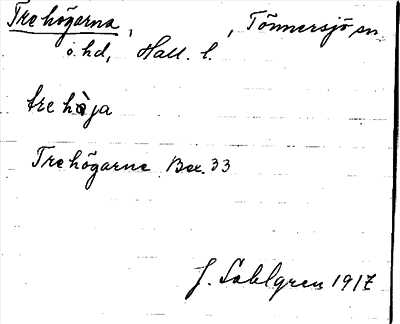 Tre högarna, , Tönnersjö sn
o. hd, Hall. l.
tre hȯ̀ja
Trehögarne Bex. 33
J. Sahlgren 1917